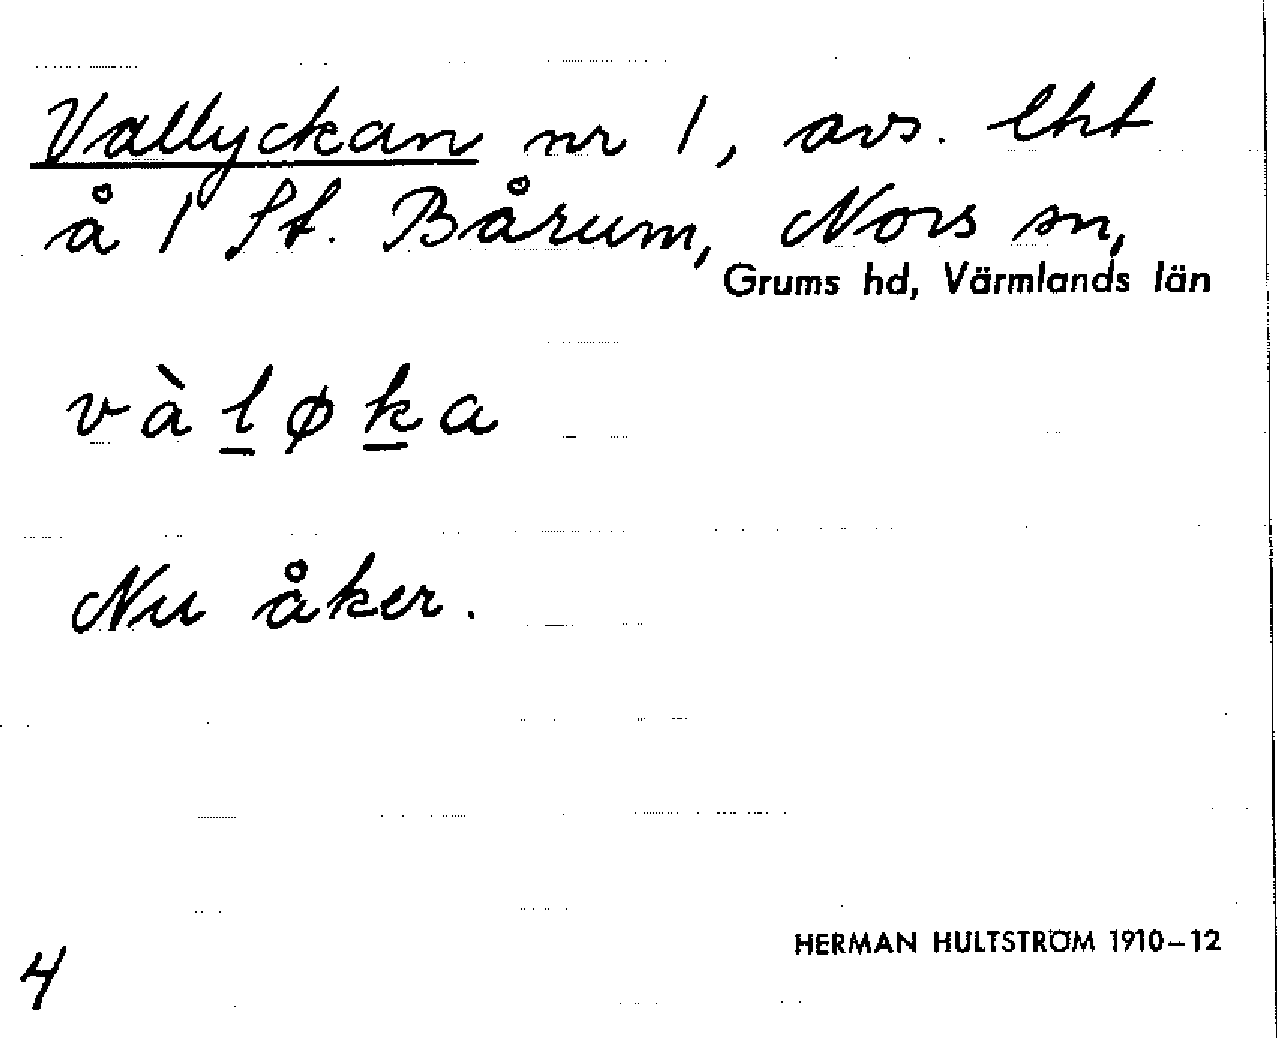 Vallyckan nr 1, avs. lht
å 1 St. Bårum, Nors sn,
Grums hd, Värmlands län
vàl̲øk̲a
Nu åker.
HERMAN HULTSTRÖM 1910–12
4